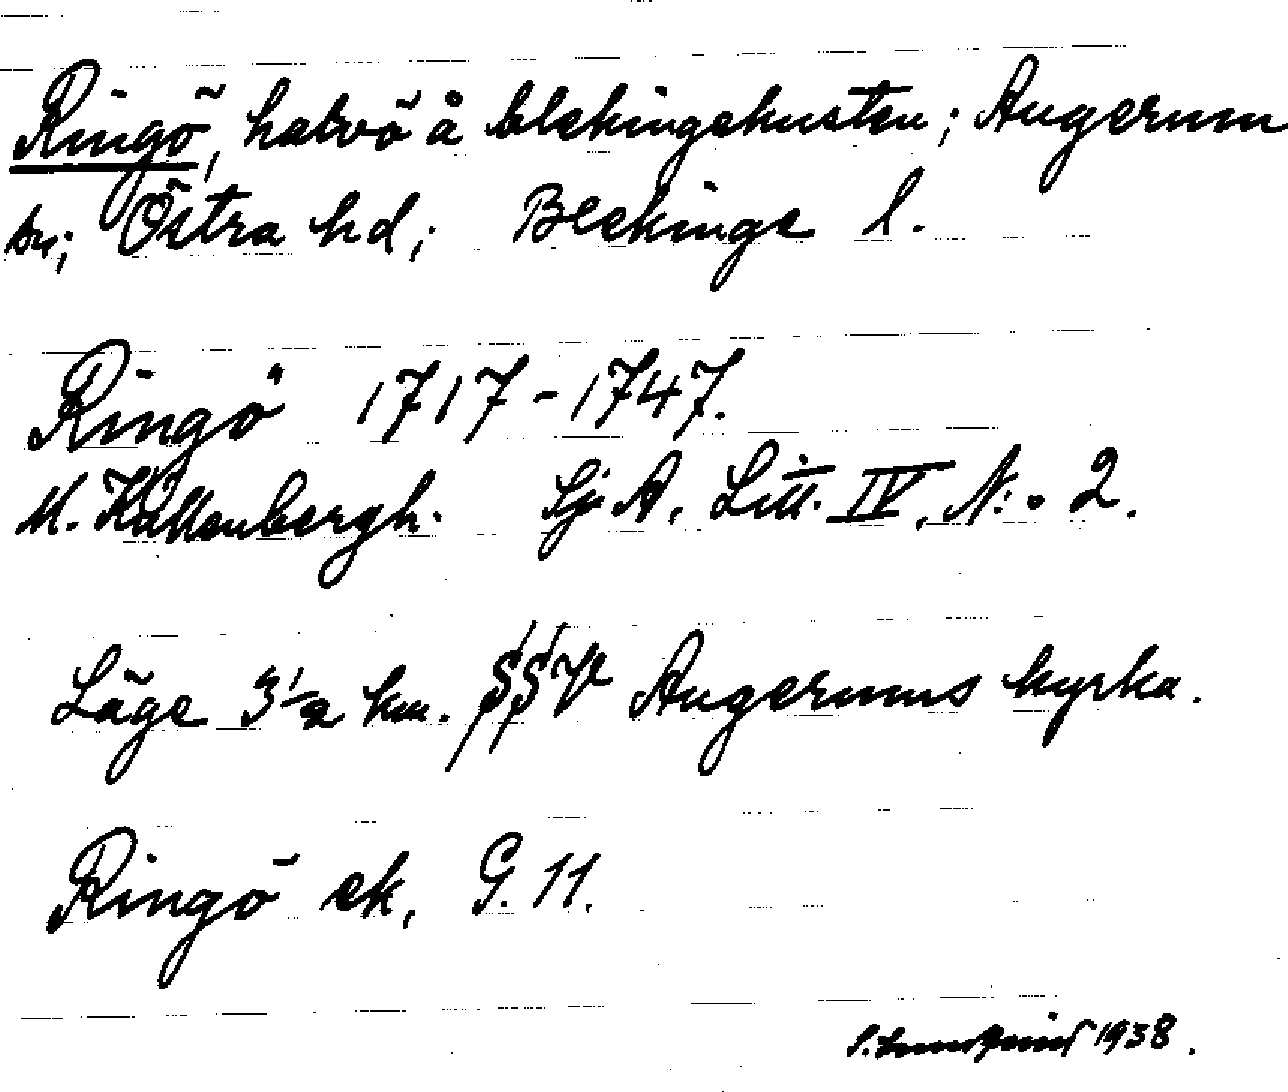 Ringö, halvö å blekingekusten; Augerum
sn; Östra hd; Blekinge l.
Ringö 1717-1747.
M. Källenbergh. Sj. A. Litt. IV, N:o 2.
Läge 3 1/2 km. SSV Augerums kyrka.
Ringö ek. G. 11.
S. Lundqvist 1938.